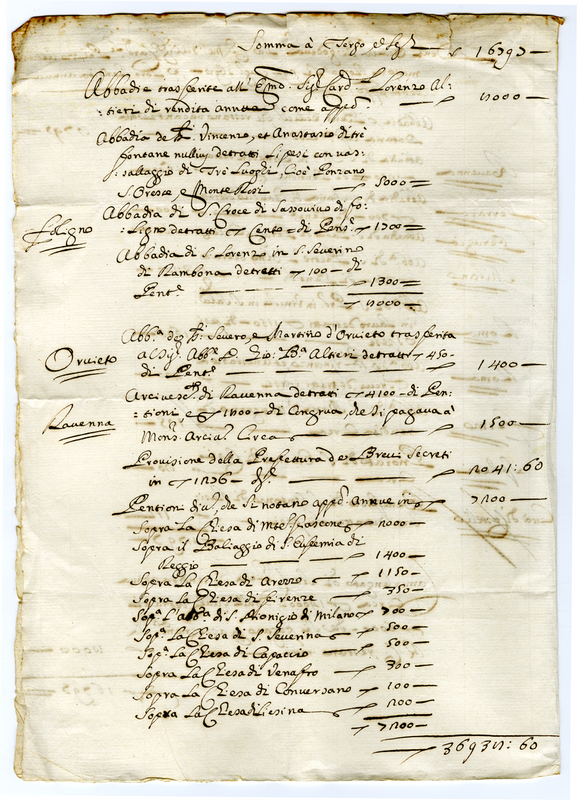 Somma à Tergo e segue 16797
Abbadie trasferite all' Emo Sigr Card. Lorenzo Al-
:tieri di rendita annua come appo 8000
Abbadia de SS. Vincenzo, et Anastasio di trè
fontane nullius detratti li pesi con vas-
:sallaggio di Trè Luoghi, Cioè Ponzano,
S. Oreste e Monte Rosi 5000
Foligno
Abbadia di S. Croce di Sassovivo di fo-
:ligno detratti Cento di Pens. 1700
Abbadia di S. Lorenzo in S. Severino
di Rambona detratti 100 di
Pens. 1300
8000
Orvieto
Abba de SS. Severo, e Martirio d'Orvieto trasferita
al Sigr Abbe D. Gio: Ba Altieri detratti 450
di Pens. 1400
Ravenna
Arcivescto di Ravenna detratti 4100 di Pen-
:sioni e 1800 di Congrua, che si pagava à
Monsr Arcivo Circa 1500
Provisione della Prefettura de Brevi Secreti
in 2041:60
Pensioni diverse, che si notano appo Annue in 7200
Sopra la Chiesa di Montefiascone 2000
Sopra il Baliaggio di S. Eufemia di
Reggio 1400
Sopra la Chiesa di Arezzo 1150
Sopra la Chiesa di firenze 350
Sopa l'abba di S. Dionigio di Milano 700
Sopa la Chiesa di S. Severina 500
Sopa la Chiesa di Capaccio 500
Sopra la Chiesa di Venafro 300
Sopra la Chiesa di Conversano 100
Sopra la Chiesa di Lesina 200
7200
36938:60